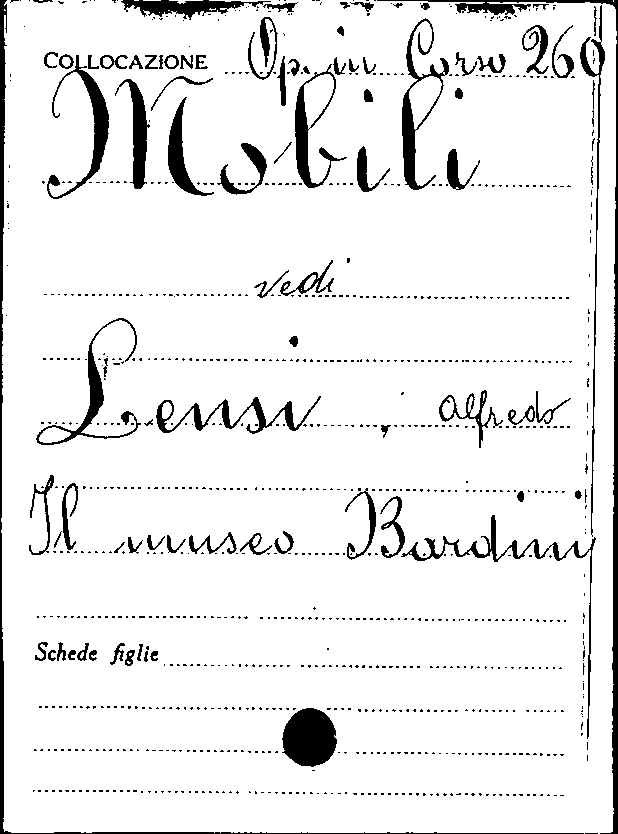 COLLOCAZIONE Op. in Corso 260
Mobili
vedi
Lensi, Alfredo
Il museo Bardini
Schede figlie